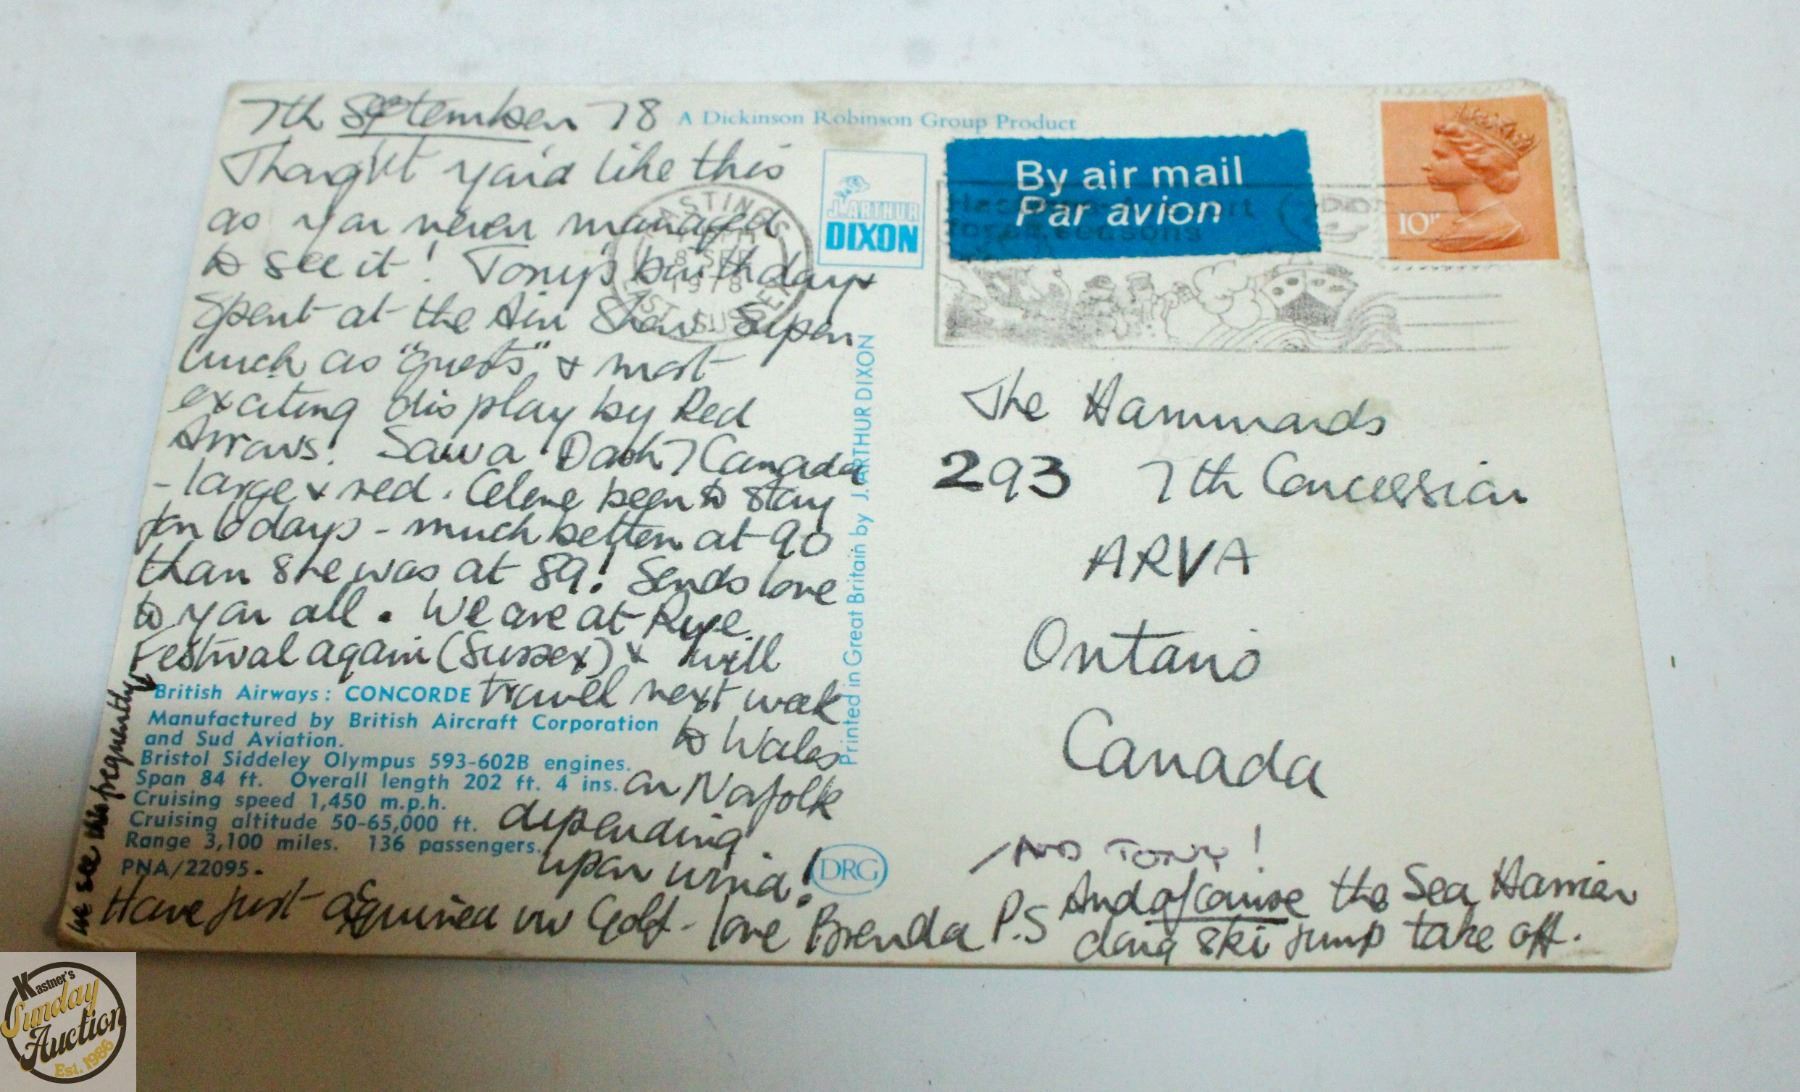 7th September 78
Thought you'd like this
as you never managed
to see it! Tony's birthday
Spent at the Air Show Super
lunch as "guests" & most
exciting display by Red
Arrows! Saw a Dash 7 Canada
- large & red. Celene been to stay
for 6 days - much better at 90
than she was at 89! Sends love
to you all. We are at Rye
Festival again (Sussex) & will
travel next week
to Wales
or Norfolk
depending
upon wind!
Have just acquired VW Golf - love Brenda
AND TONY!
P.S And of course the Sea Harrier
doing ski jump take off.
we see this frequently
British Airways: CONCORDE
Manufactured by British Aircraft Corporation
and Sud Aviation.
Bristol Siddeley Olympus 593-602B engines.
Span 84 ft. Overall length 202 ft. 4 ins.
Cruising speed 1,450 m.p.h.
Cruising altitude 50-65,000 ft.
Range 3,100 miles. 136 passengers.
PNA/22095.
A Dickinson Robinson Group Product
J. ARTHUR
DIXON
Printed in Great Britain by J. ARTHUR DIXON
DRG
HASTINGS
8 SEP
1978
EAST SUSSEX
By air mail
Par avion
for all seasons
10P
The Hammonds
293 7th Concession
ARVA
Ontario
Canada
Kastner's
Sunday
Auction
Est. 1986